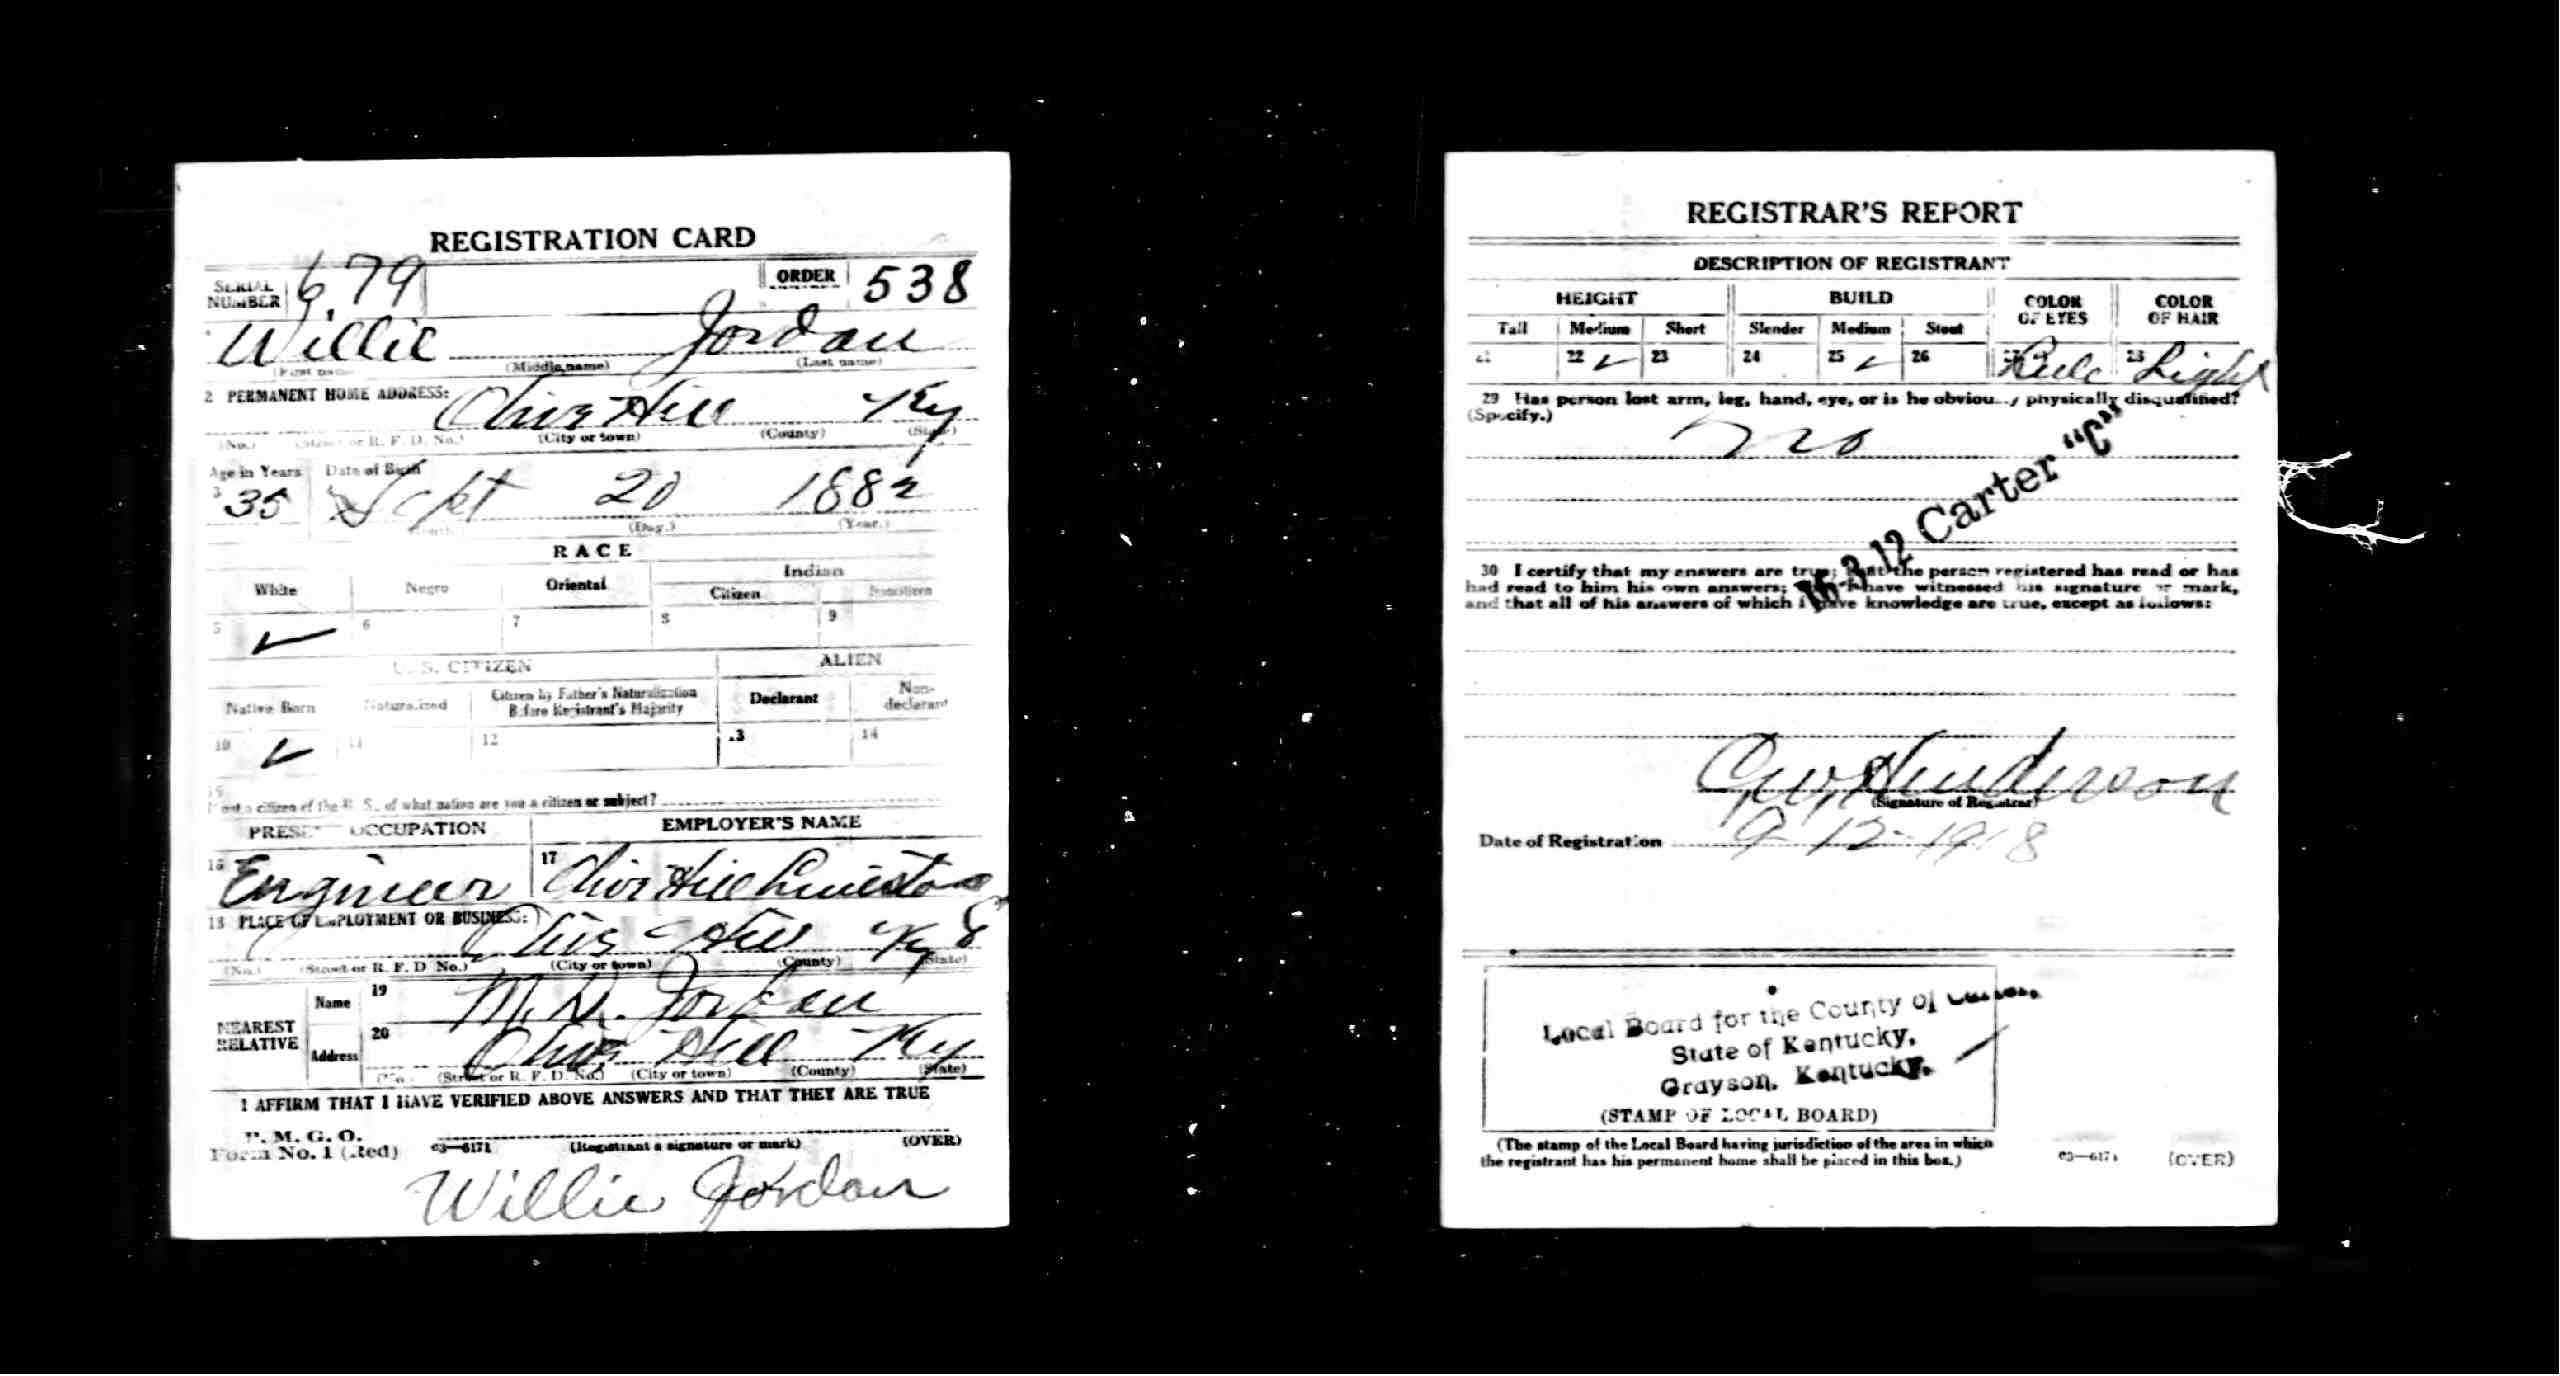 REGISTRATION CARD
SERIAL NUMBER 679 ORDER 538
Willie Jordan
(First name) (Middle name) (Last name)
2 PERMANENT HOME ADDRESS: Olive Hill Ky
(No.) (Street or R. F. D. No.) (City or town) (County) (State)
Age in Years Date of Birth
3 35 Sept 20 1882
(Month.) (Day.) (Year.)
RACE
White Negro Oriental Indian
Citizen Noncitizen
5 ✓ 6 7 8 9
U. S. CITIZEN ALIEN
Native Born Naturalized Citizen by Father's Naturalization Before Registrant's Majority Declarant Non-declarant
10 ✓ 11 12 13 14
15
If not a citizen of the U. S., of what nation are you a citizen or subject?
PRESENT OCCUPATION EMPLOYER'S NAME
16 Engineer 17 Olive Hill Limestone
18 PLACE OF EMPLOYMENT OR BUSINESS:
Olive Hill Ky
(No.) (Street or R. F. D. No.) (City or town) (County) (State)
NEAREST RELATIVE Name 19 Jordan
Address 20 Olive Hill Ky
(No.) (Street or R. F. D. No.) (City or town) (County) (State)
I AFFIRM THAT I HAVE VERIFIED ABOVE ANSWERS AND THAT THEY ARE TRUE
P. M. G. O.
Form No. 1 (Red) 03—6171 (Registrant's signature or mark) (OVER)
Willie Jordan
REGISTRAR'S REPORT
DESCRIPTION OF REGISTRANT
HEIGHT BUILD COLOR OF EYES COLOR OF HAIR
Tall Medium Short Slender Medium Stout
21 22 ✓ 23 24 25 ✓ 26 27 28 Light
29 Has person lost arm, leg, hand, eye, or is he obviously physically disqualified?
(Specify.)
no
16-3-12 Carter "C"
30 I certify that my answers are true; that the person registered has read or has
had read to him his own answers; that I have witnessed his signature or mark,
and that all of his answers of which I have knowledge are true, except as follows:
G. W. Henderson
(Signature of Registrar)
Date of Registration 9-12-1918
Local Board for the County of Carter,
State of Kentucky,
Grayson, Kentucky.
(STAMP OF LOCAL BOARD)
(The stamp of the Local Board having jurisdiction of the area in which
the registrant has his permanent home shall be placed in this box.)
03—6171 (OVER)